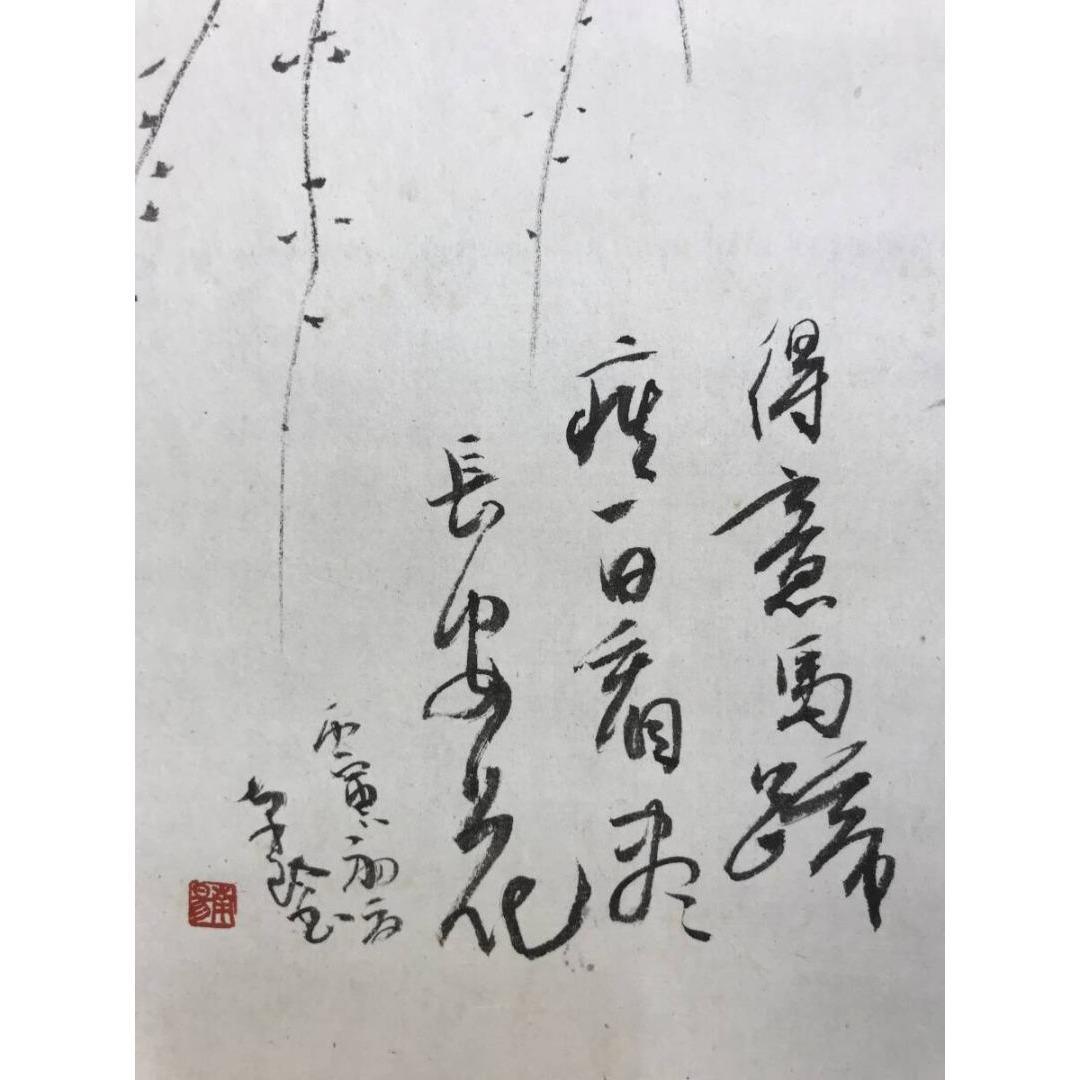 得意馬蹄
疾一日看盡
長安花
丙寅初